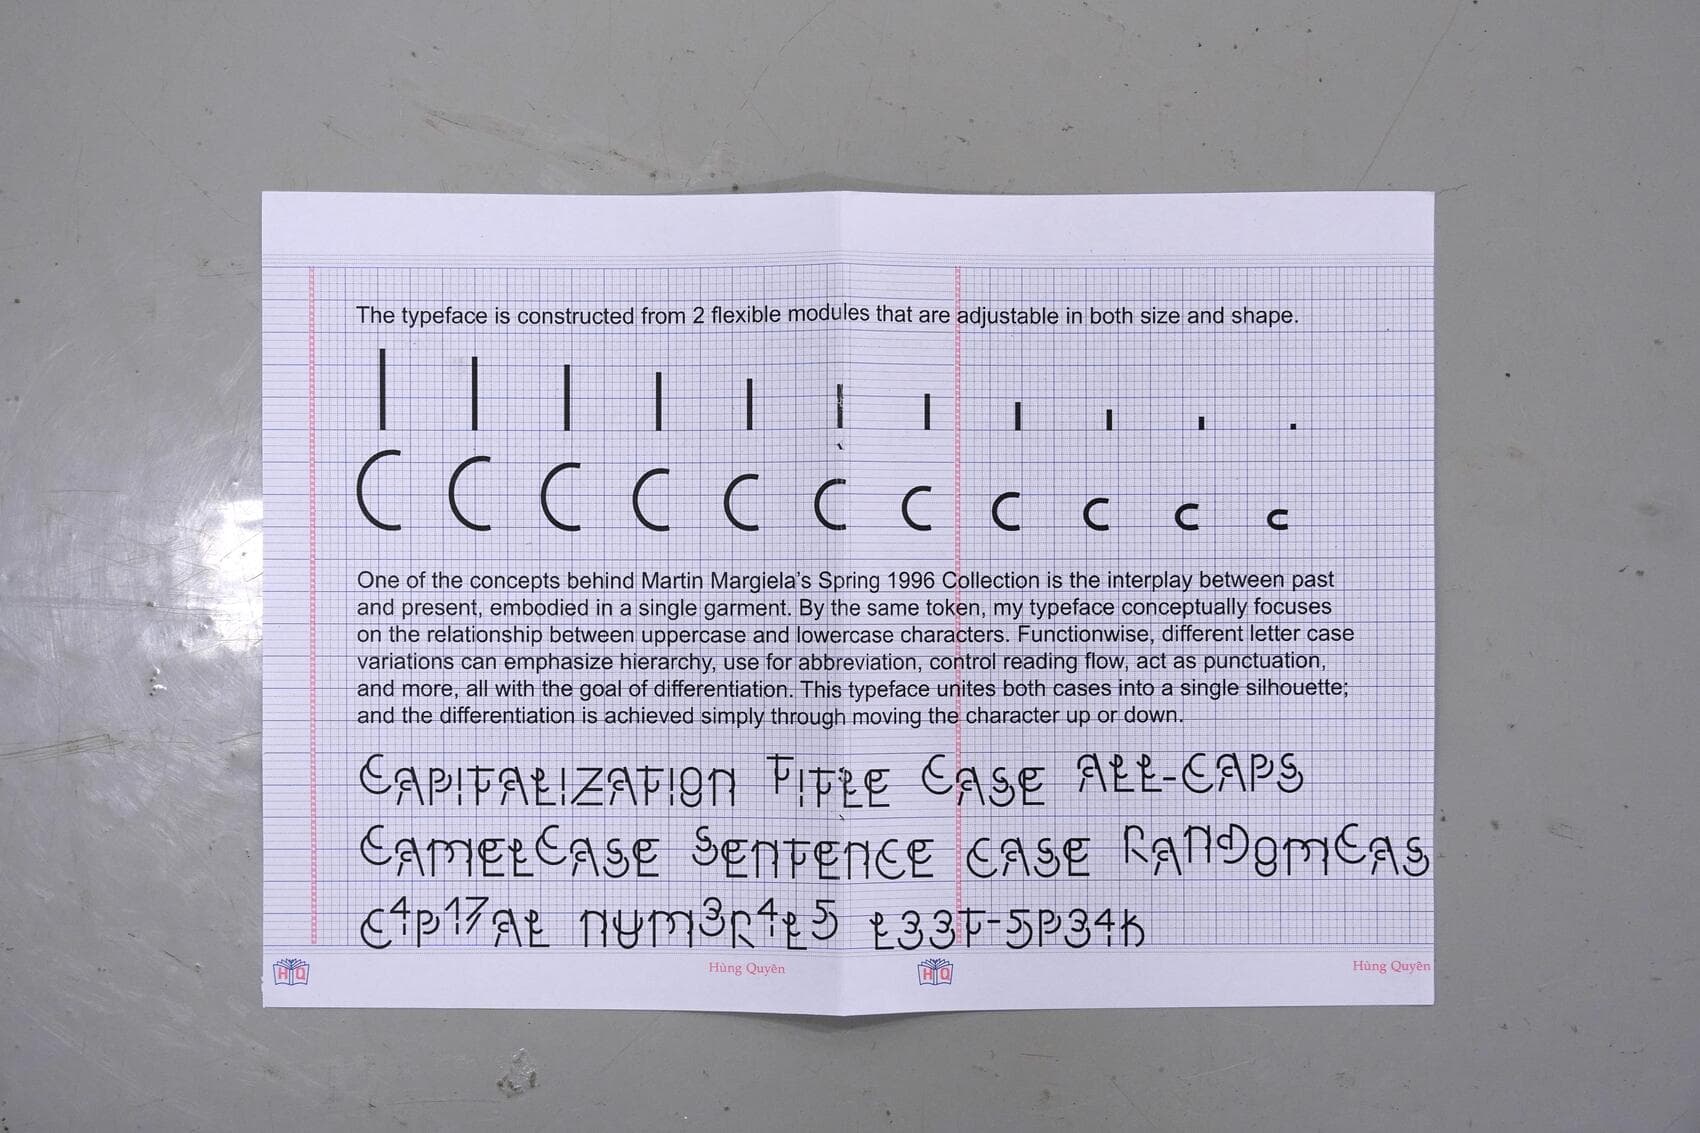 The typeface is constructed from 2 flexible modules that are adjustable in both size and shape.
One of the concepts behind Martin Margiela's Spring 1996 Collection is the interplay between past
and present, embodied in a single garment. By the same token, my typeface conceptually focuses
on the relationship between uppercase and lowercase characters. Functionwise, different letter case
variations can emphasize hierarchy, use for abbreviation, control reading flow, act as punctuation,
and more, all with the goal of differentiation. This typeface unites both cases into a single silhouette;
and the differentiation is achieved simply through moving the character up or down.
Capitalization Title Case ALL-CAPS
CamelCase Sentence case RaNDomCas
c4p17al num3r4l5 l33t-5p34k
HQ Hùng Quyên HQ Hùng Quyên